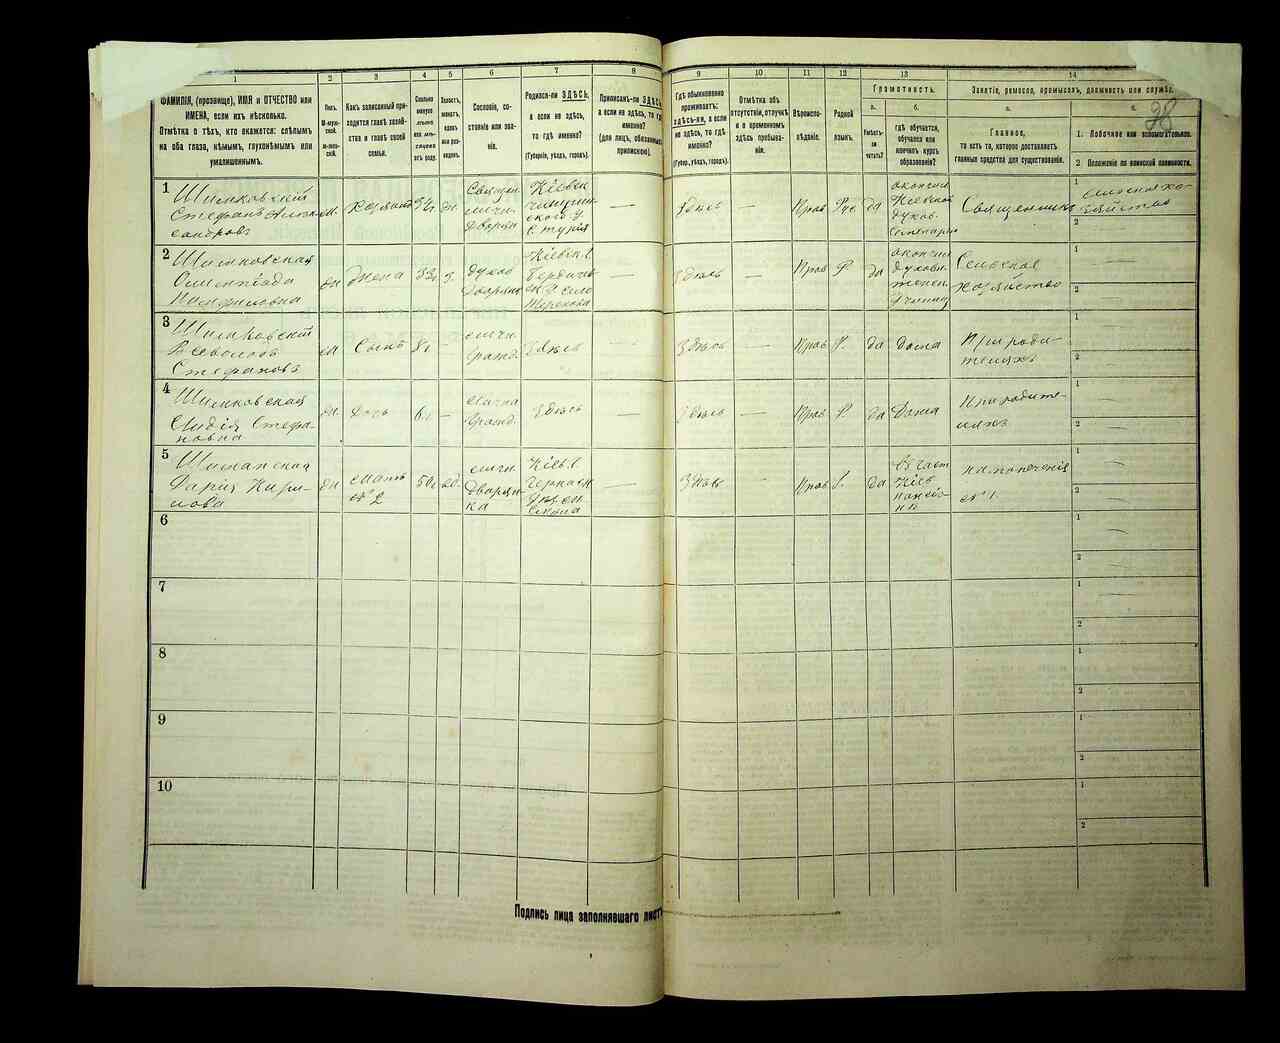 1
2
3
4
5
6
7
8
9
10
11
12
13
14
ФАМИЛІЯ, (прозвище), ИМЯ и ОТЧЕСТВО или
ИМЕНА, если ихъ нѣсколько.
Отмѣтка о тѣхъ, кто окажется: слѣпымъ
на оба глаза, нѣмымъ, глухонѣмымъ или
умалишеннымъ.
Полъ.
М-муж-
ской.
Ж-жен-
скій.
Какъ записанный при-
ходится главѣ хозяй-
ства и главѣ своей
семьи.
Сколько
минуло
лѣтъ
или мѣ-
сяцевъ
отъ роду.
Холостъ,
женатъ,
вдовъ
или раз-
веденъ.
Сословіе, со-
стояніе или зва-
ніе.
Родился-ли ЗДѢСЬ,
а если не здѣсь,
то гдѣ именно?
(Губернія, уѣздъ, городъ).
Приписанъ-ли ЗДѢСЬ,
а если не здѣсь, то гдѣ
именно?
(для лицъ, обязанныхъ
припискою).
Гдѣ обыкновенно
проживаетъ:
здѣсь-ли, а если
не здѣсь, то гдѣ
именно?
(Губер., уѣздъ, городъ).
Отмѣтка объ
отсутствіи, отлучкѣ
и о временномъ
здѣсь пребыва-
ніи.
Вѣроиспо-
вѣданіе.
Родной
языкъ.
Грамотность.
а.
б.
Умѣетъ-
ли
читать?
гдѣ обучается,
обучался или
кончилъ курсъ
образованія?
Занятіе, ремесло, промыселъ, должность или служба.
а.
б.
Главное,
то есть то, которое доставляетъ
главныя средства для существованія.
1. Побочное или вспомогательное.
2. Положеніе по воинской повинности.
28
1
Шимковскій
Стефанъ Алек
сандровъ
м.
Хозяинъ
Священ.
Дворян
Кіевск
—
Здѣсь
—
Прав
Рус
да
окончил
Кіевскую
духов.
Семинарію
Священникъ
1
сельское хо-
зяйство
2
2
Шимковская
Олимпіада
Жена
Кіевск.
Бердичев
—
Здѣсь
—
Прав
Р
да
окончил
духовн
женск.
Училищ
Сельское
хозяйство
1
2
3
Шимковскій
Всеволодъ
Стефановъ
Сынъ
8
—
Здѣсь
—
Здѣсь
—
Прав
Р.
да
дома
При роди-
теляхъ
1
2
4
Шимковская
Лидія Стефа-
новна
Дочь
6
—
Здѣсь
—
Здѣсь
—
Прав
Р
да
Дома
При родите-
ляхъ
1
2
5
Дарія Кири-
лова
мать
№ 2
вд.
дворян-
ка
Кіев.
—
Здѣсь
—
Прав
да
Кіев
пансіо
на попеченіи
№ 1.
1
2
6
1
2
7
1
2
8
1
2
9
1
2
10
1
2
Подпись лица заполнявшаго листъ